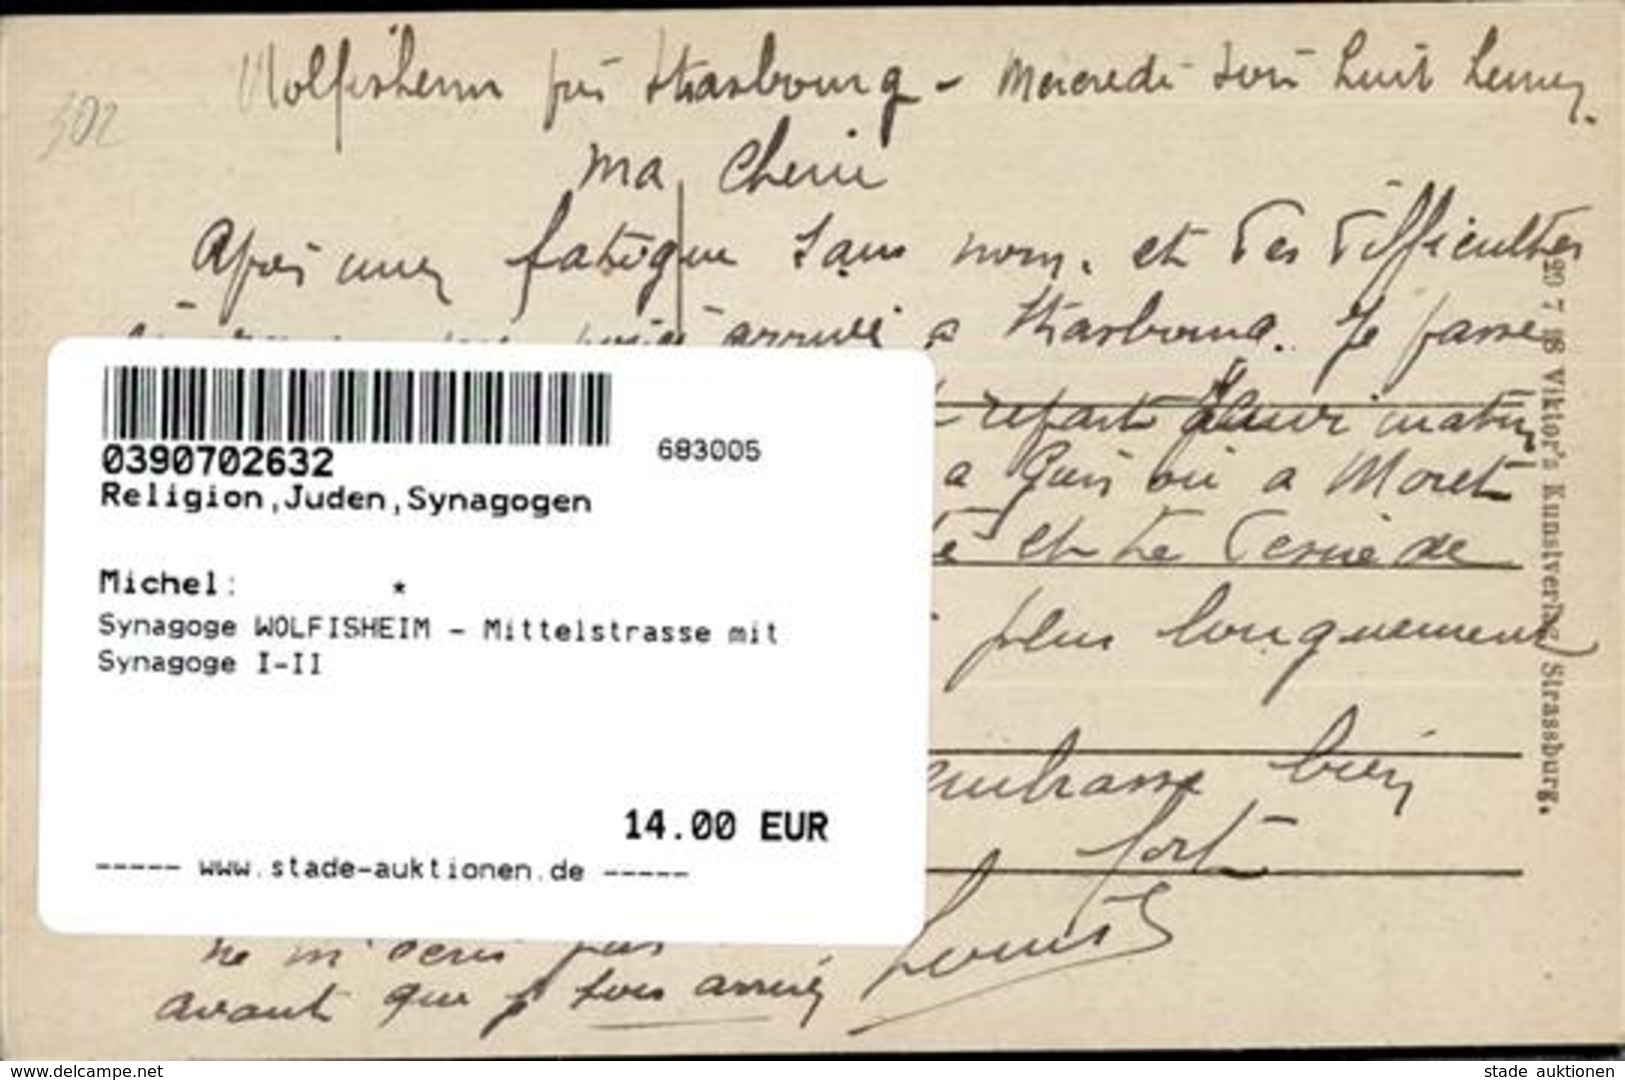 302
Wolfisheim près Strasbourg - Mercredi soir huit heures.
Ma Cherie
Après une fatigue sans nom, et des difficultés
arrivé a Strasbourg. Je passe
repart matin
a ou a Moret
et te
plus longuement
embrasse bien
fort
Louis
ne m'écris pas
avant que je sois arrivé
20 7 18 Viktor's Kunstverlag Strassburg.
0390702632
683005
Religion,Juden,Synagogen
Michel: *
Synagoge WOLFISHEIM - Mittelstrasse mit
Synagoge I-II
14.00 EUR
----- www.stade-auktionen.de -----
www.delcampe.net
stade auktionen